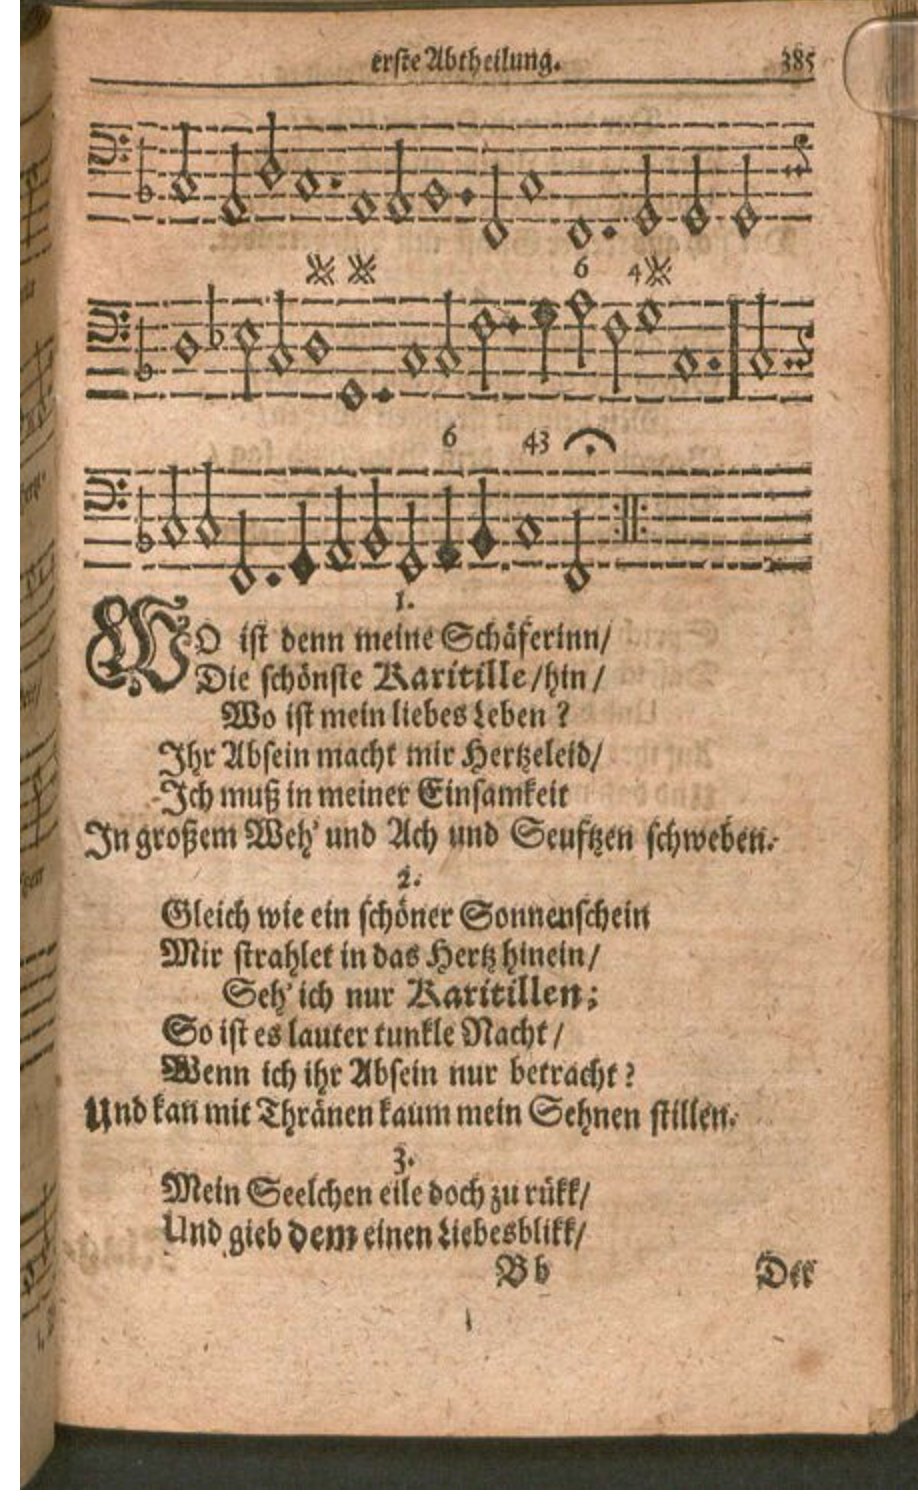 erste Abtheilung. 385
6 4
6 43
1.
WO ist denn meine Schäferinn/
Die schönste Karitille/hin/
Wo ist mein liebes Leben?
Ihr Absein macht mir Hertzeleid/
Ich muß in meiner Einsamkeit
In großem Weh' und Ach und Seuftzen schweben.
2.
Gleich wie ein schöner Sonnenschein
Mir strahlet in das Hertz hinein/
Seh' ich nur Karitillen;
So ist es lauter tunkle Nacht/
Wenn ich ihr Absein nur betracht?
Und kan mit Thränen kaum mein Sehnen stillen.
3.
Mein Seelchen eile doch zu rükk/
Und gieb dem einen Liebesblikk/
Bb Der